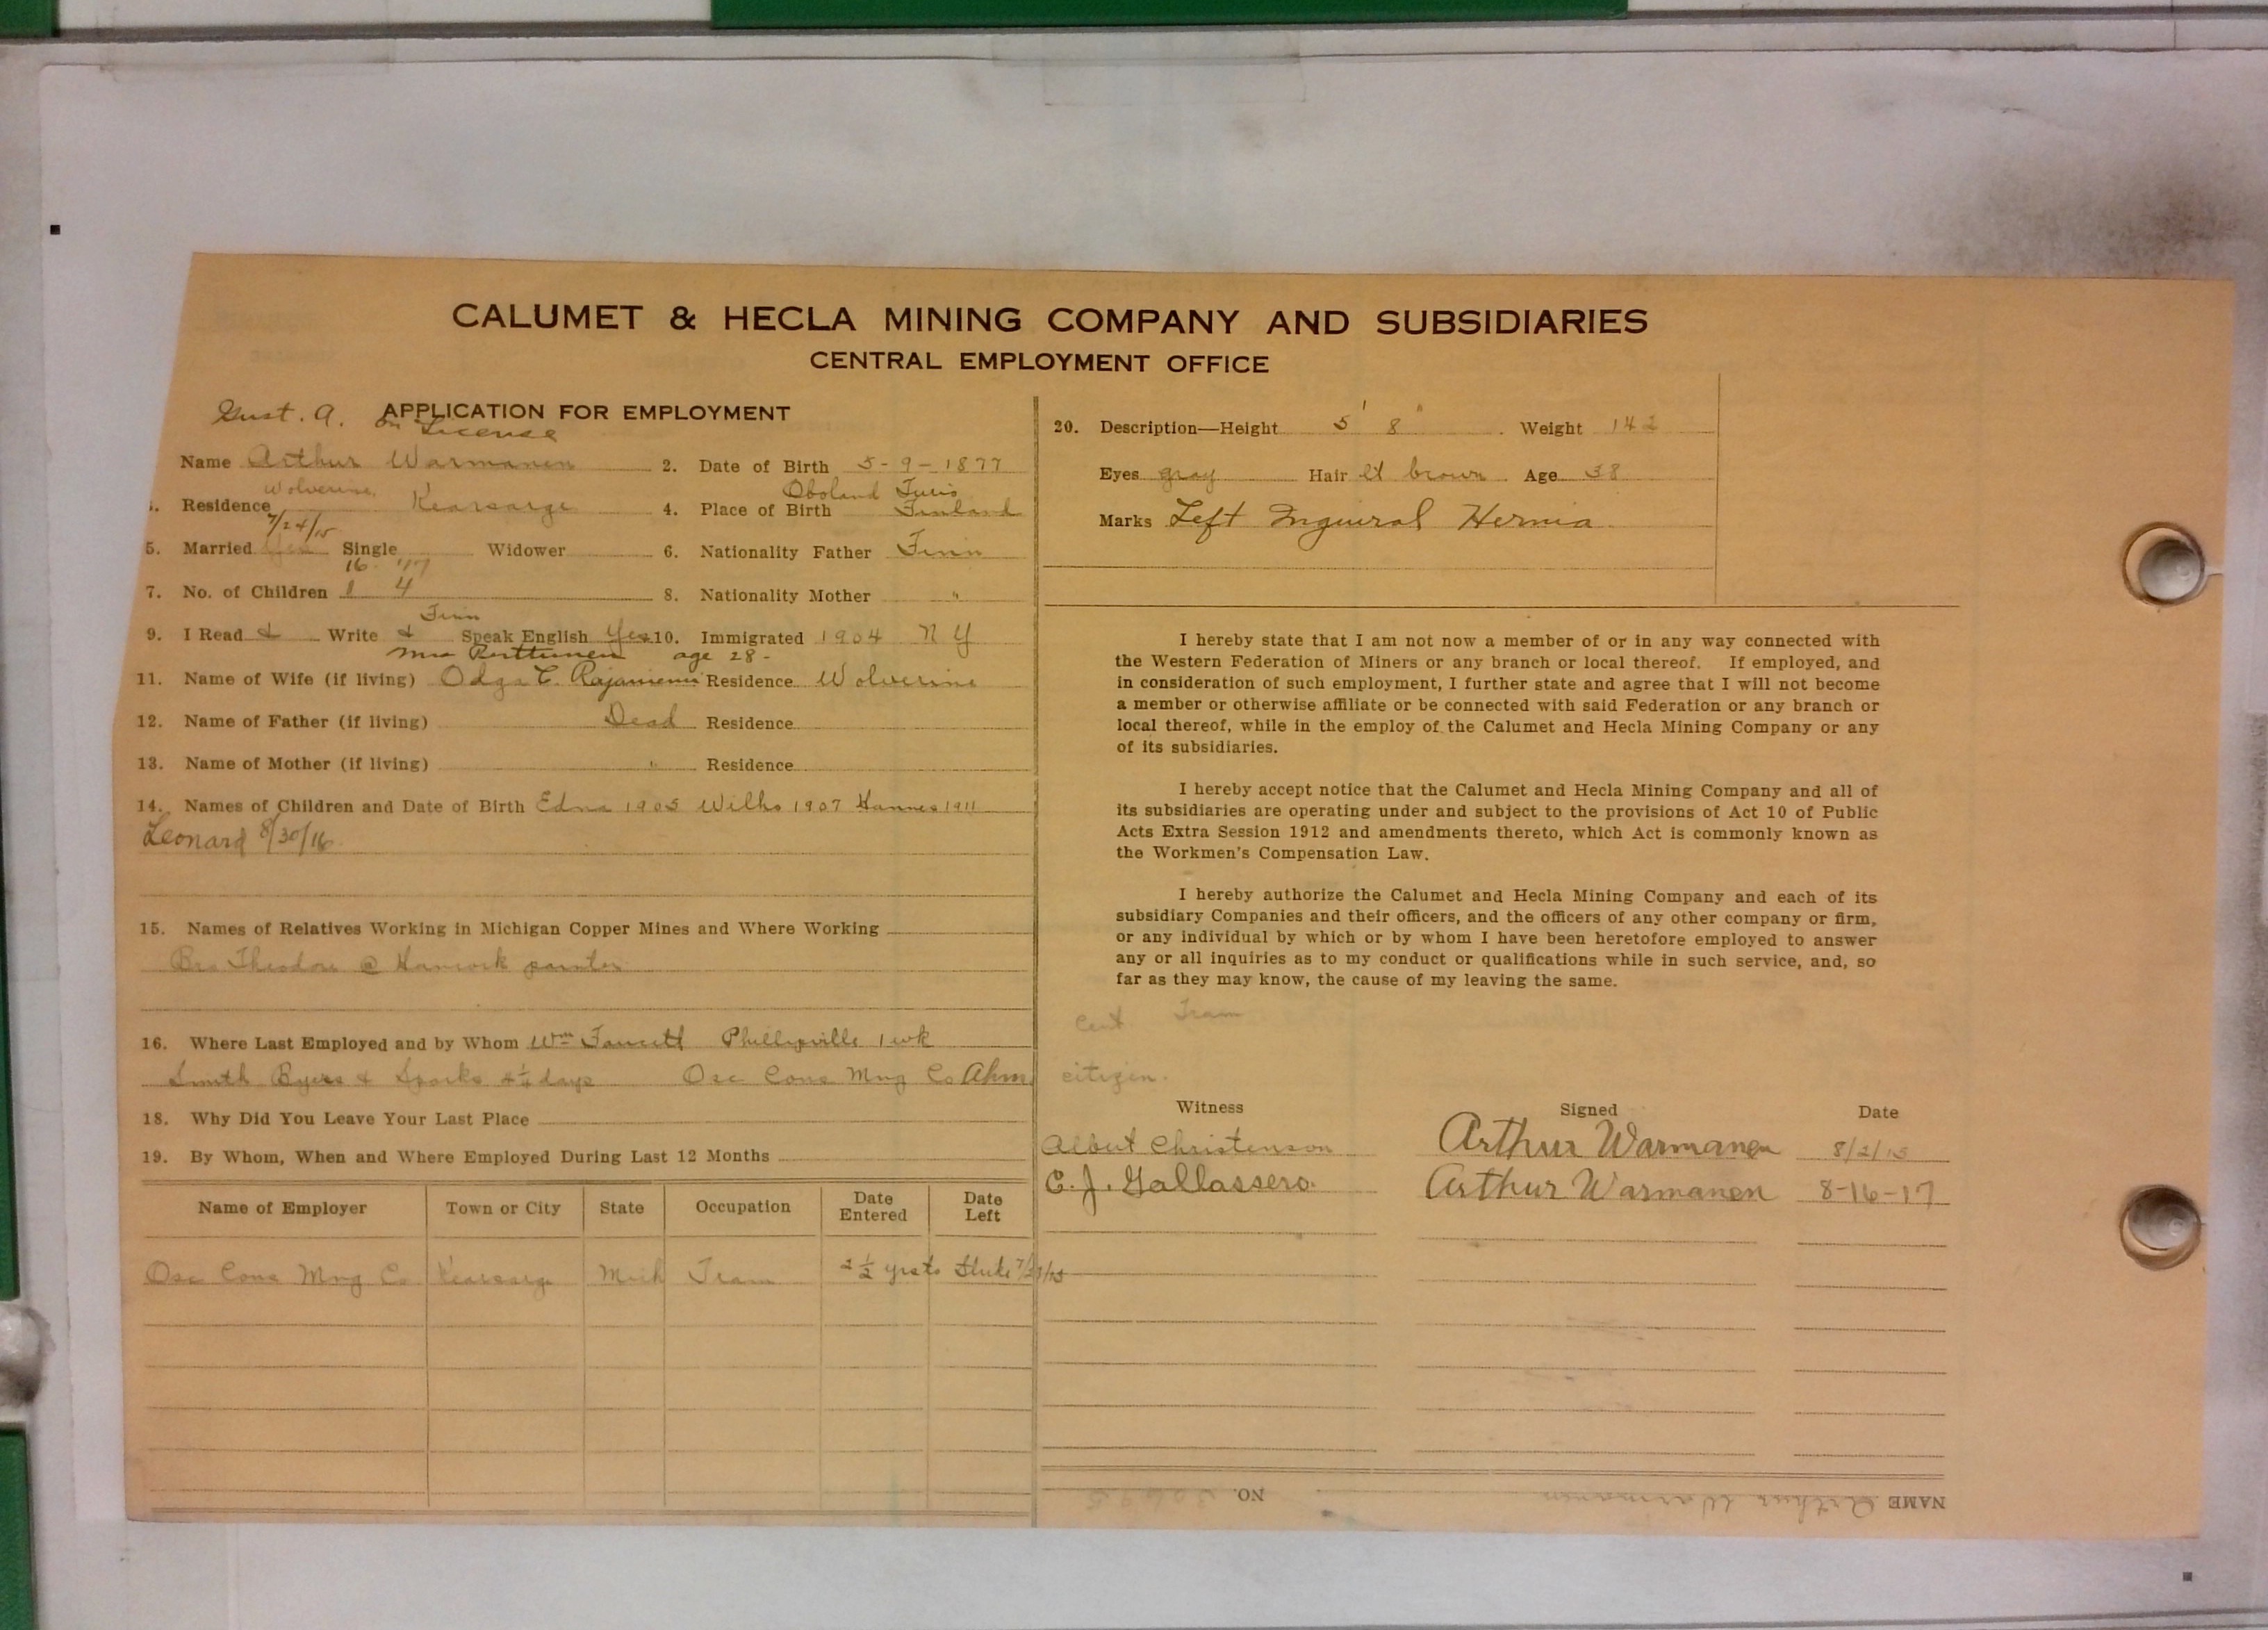 CALUMET & HECLA MINING COMPANY AND SUBSIDIARIES
CENTRAL EMPLOYMENT OFFICE
APPLICATION FOR EMPLOYMENT
Gust. A. on License
Name Arthur Warmanen 2. Date of Birth 5-9-1877
Wolverine,
Residence Kearsarge 4. Place of Birth Finland
7/24/15
5. Married Single Widower 6. Nationality Father Finn
16 '17
7. No. of Children 4 8. Nationality Mother "
Finn
9. I Read & Write & Speak English Yes 10. Immigrated 1904 N Y
Mrs age 28-
11. Name of Wife (if living) Residence Wolverine
12. Name of Father (if living) Dead Residence
13. Name of Mother (if living) " Residence
14. Names of Children and Date of Birth Edna 1905 Wilho 1907 Hannes 1911
Leonard 8/30/16
15. Names of Relatives Working in Michigan Copper Mines and Where Working
Bro Theodore @ Hancock painter
16. Where Last Employed and by Whom Wm Faucett Phillipsville 1 wk
Smith Byers & Sparks 4 1/4 days Osc Cons Mng Co Ahm.
18. Why Did You Leave Your Last Place
19. By Whom, When and Where Employed During Last 12 Months
Name of Employer Town or City State Occupation Date Entered Date Left
Osc Cons Mng Co Kearsarge Mich Tram 2 1/2 yrs to
20. Description—Height 5' 8" Weight 142
Eyes gray Hair lt brown Age 38
Marks Left Inguiral Hernia
I hereby state that I am not now a member of or in any way connected with
the Western Federation of Miners or any branch or local thereof. If employed, and
in consideration of such employment, I further state and agree that I will not become
a member or otherwise affiliate or be connected with said Federation or any branch or
local thereof, while in the employ of the Calumet and Hecla Mining Company or any
of its subsidiaries.
I hereby accept notice that the Calumet and Hecla Mining Company and all of
its subsidiaries are operating under and subject to the provisions of Act 10 of Public
Acts Extra Session 1912 and amendments thereto, which Act is commonly known as
the Workmen's Compensation Law.
I hereby authorize the Calumet and Hecla Mining Company and each of its
subsidiary Companies and their officers, and the officers of any other company or firm,
or any individual by which or by whom I have been heretofore employed to answer
any or all inquiries as to my conduct or qualifications while in such service, and, so
far as they may know, the cause of my leaving the same.
Cert. Tram
citizen.
Witness Signed Date
Albert Christenson Arthur Warmanen 8/2/15
C. J. Gallassero. Arthur Warmanen 8-16-17
NAME Arthur Warmanen NO.